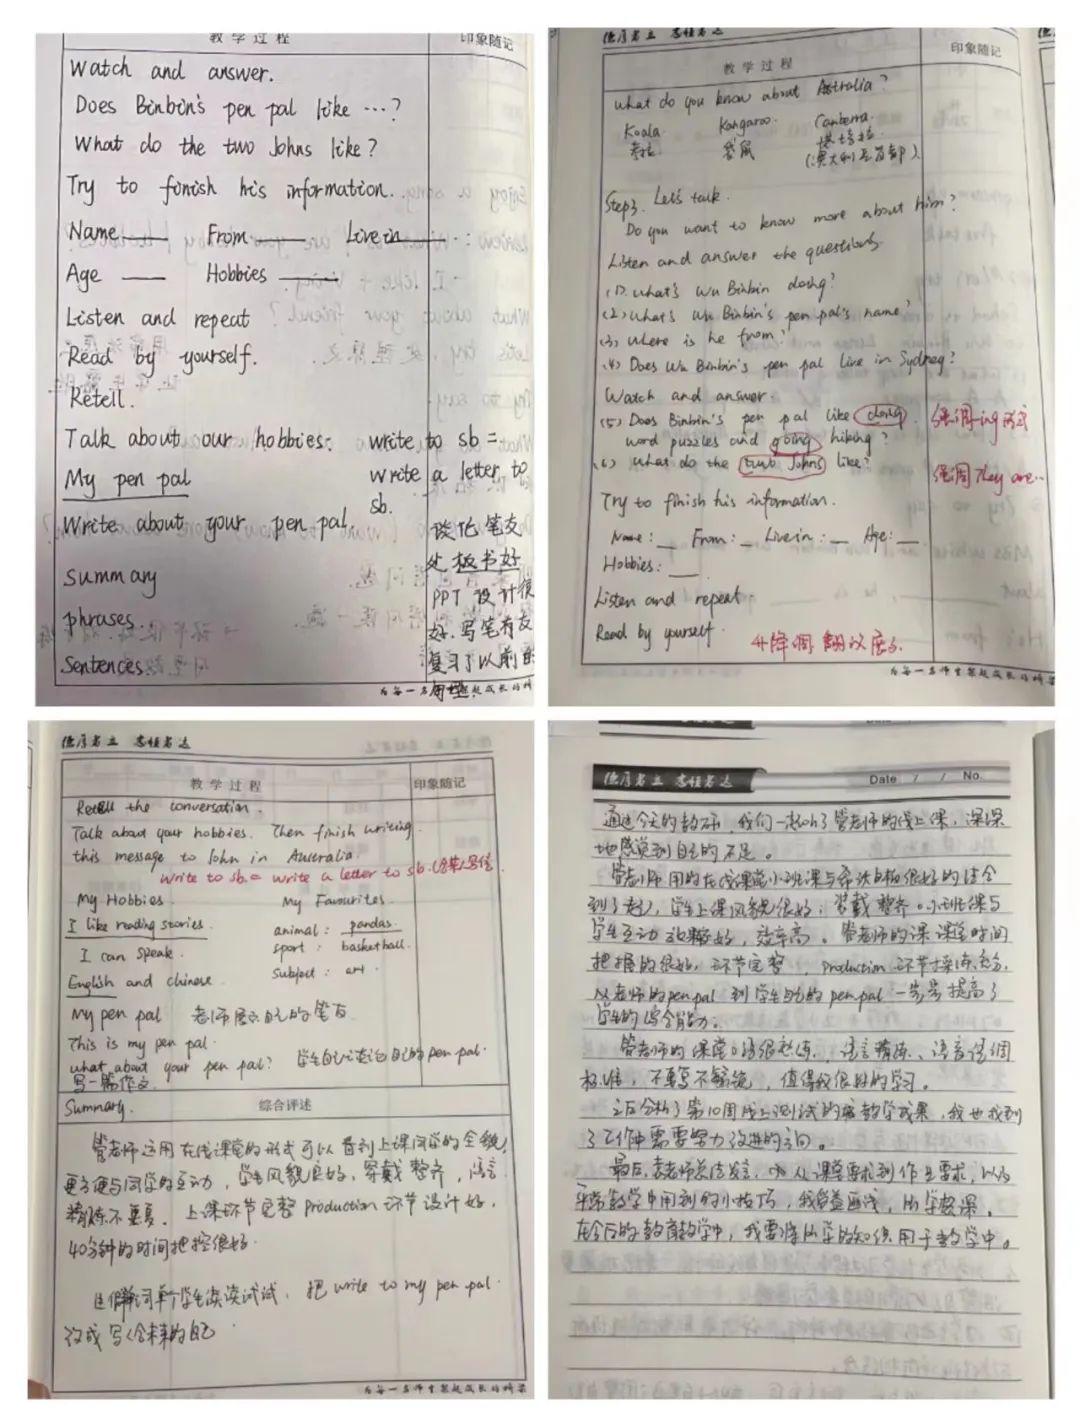 教学过程 印象随记
Watch and answer.
Does Binbin's pen pal like ...?
What do the two Johns like?
Try to finish his information.
Name____ From____ Live in____
Age____ Hobbies____
Listen and repeat
Read by yourself.
Retell.
Talk about our hobbies: write to sb =
My pen pal write a letter to
sb.
Write about your pen pal.
谈论笔友
处板书好
Summary
PPT设计很
phrases.
好.写笔有友
Sentences.
复习了以前的
句型.
为每一名师生架起成长的桥
德厚者立 志恒者达
教学过程 印象随记
What do you know about Australia?
Koala. Kangaroo. Canberra.
考拉 袋鼠 堪培拉
(澳大利亚首都)
Step3. Let's talk.
Do you want to know more about him?
Listen and answer the questions.
(1). What's Wu Binbin doing?
(2) What's Wu Binbin's pen pal's name?
(3) Where is he from?
(4) Does Wu Binbin's pen pal live in Sydney?
Watch and answer.
(5) Does Binbin's pen pal like doing 强调-ing形式
word puzzles and going hiking?
(6) What do the two Johns like? 强调They are...
Try to finish his information.
Name:__ From:__ Live in:__ Age:__
Hobbies:__
Listen and repeat.
Read by yourself. 升降调
为每一名师生架起成长的桥梁
德厚者立 志恒者达
教学过程 印象随记
Retell the conversation.
Talk about your hobbies. Then finish writing
this message to John in Australia.
write to sb. = write a letter to sb. (给某人写信
My Hobbies. My Favourites.
I like reading stories. animal: pandas
I can speak. sport: basketball.
English and Chinese. subject: art.
My pen pal 老师展示自己的笔友
This is my pen pal.
What about your pen pal? 学生自己谈论自己的pen pal.
写一篇作文
Summary. 综合评述
管老师运用在线课堂的形式可以看到上课同学的全貌,
更方便与同学的互动,学生风貌良好,穿戴整齐,语言
精炼不重复.上课环节完整 production环节设计好,
40分钟的时间把控很好.
单个学生读读试试,把write to my pen pal.
改成写给未来的自己.
为每一名师生架起成长的桥梁
德厚者立 志恒者达 Date / / No.
通过今天的教研,我们一起听了管老师的线上课,深深
地感觉到自己的不足。
管老师用的在线课堂小班课与希沃白板很好的结合
到了一起,学生上课风貌很好,穿戴整齐。小班课与
学生互动效果较好,效率高。管老师的课课堂时间
把握的很好,环节完整,production环节操练充分,
从老师的pen pal到学生自己的pen pal一步步提高了
学生的综合能力。
管老师的课堂口语很熟练,语言精炼、语音语调
标准,不重复不繁琐,值得我很好的学习。
之后分析了第10周线上测试的教学成果,我也找到
了工作中需要努力改进的方向。
最后,老师总结发言,从课堂要求到作业要求,以及
平常教学中用到的小技巧,我受益匪浅,
在今后的教育教学中,我要将所学的知识用于教学中。